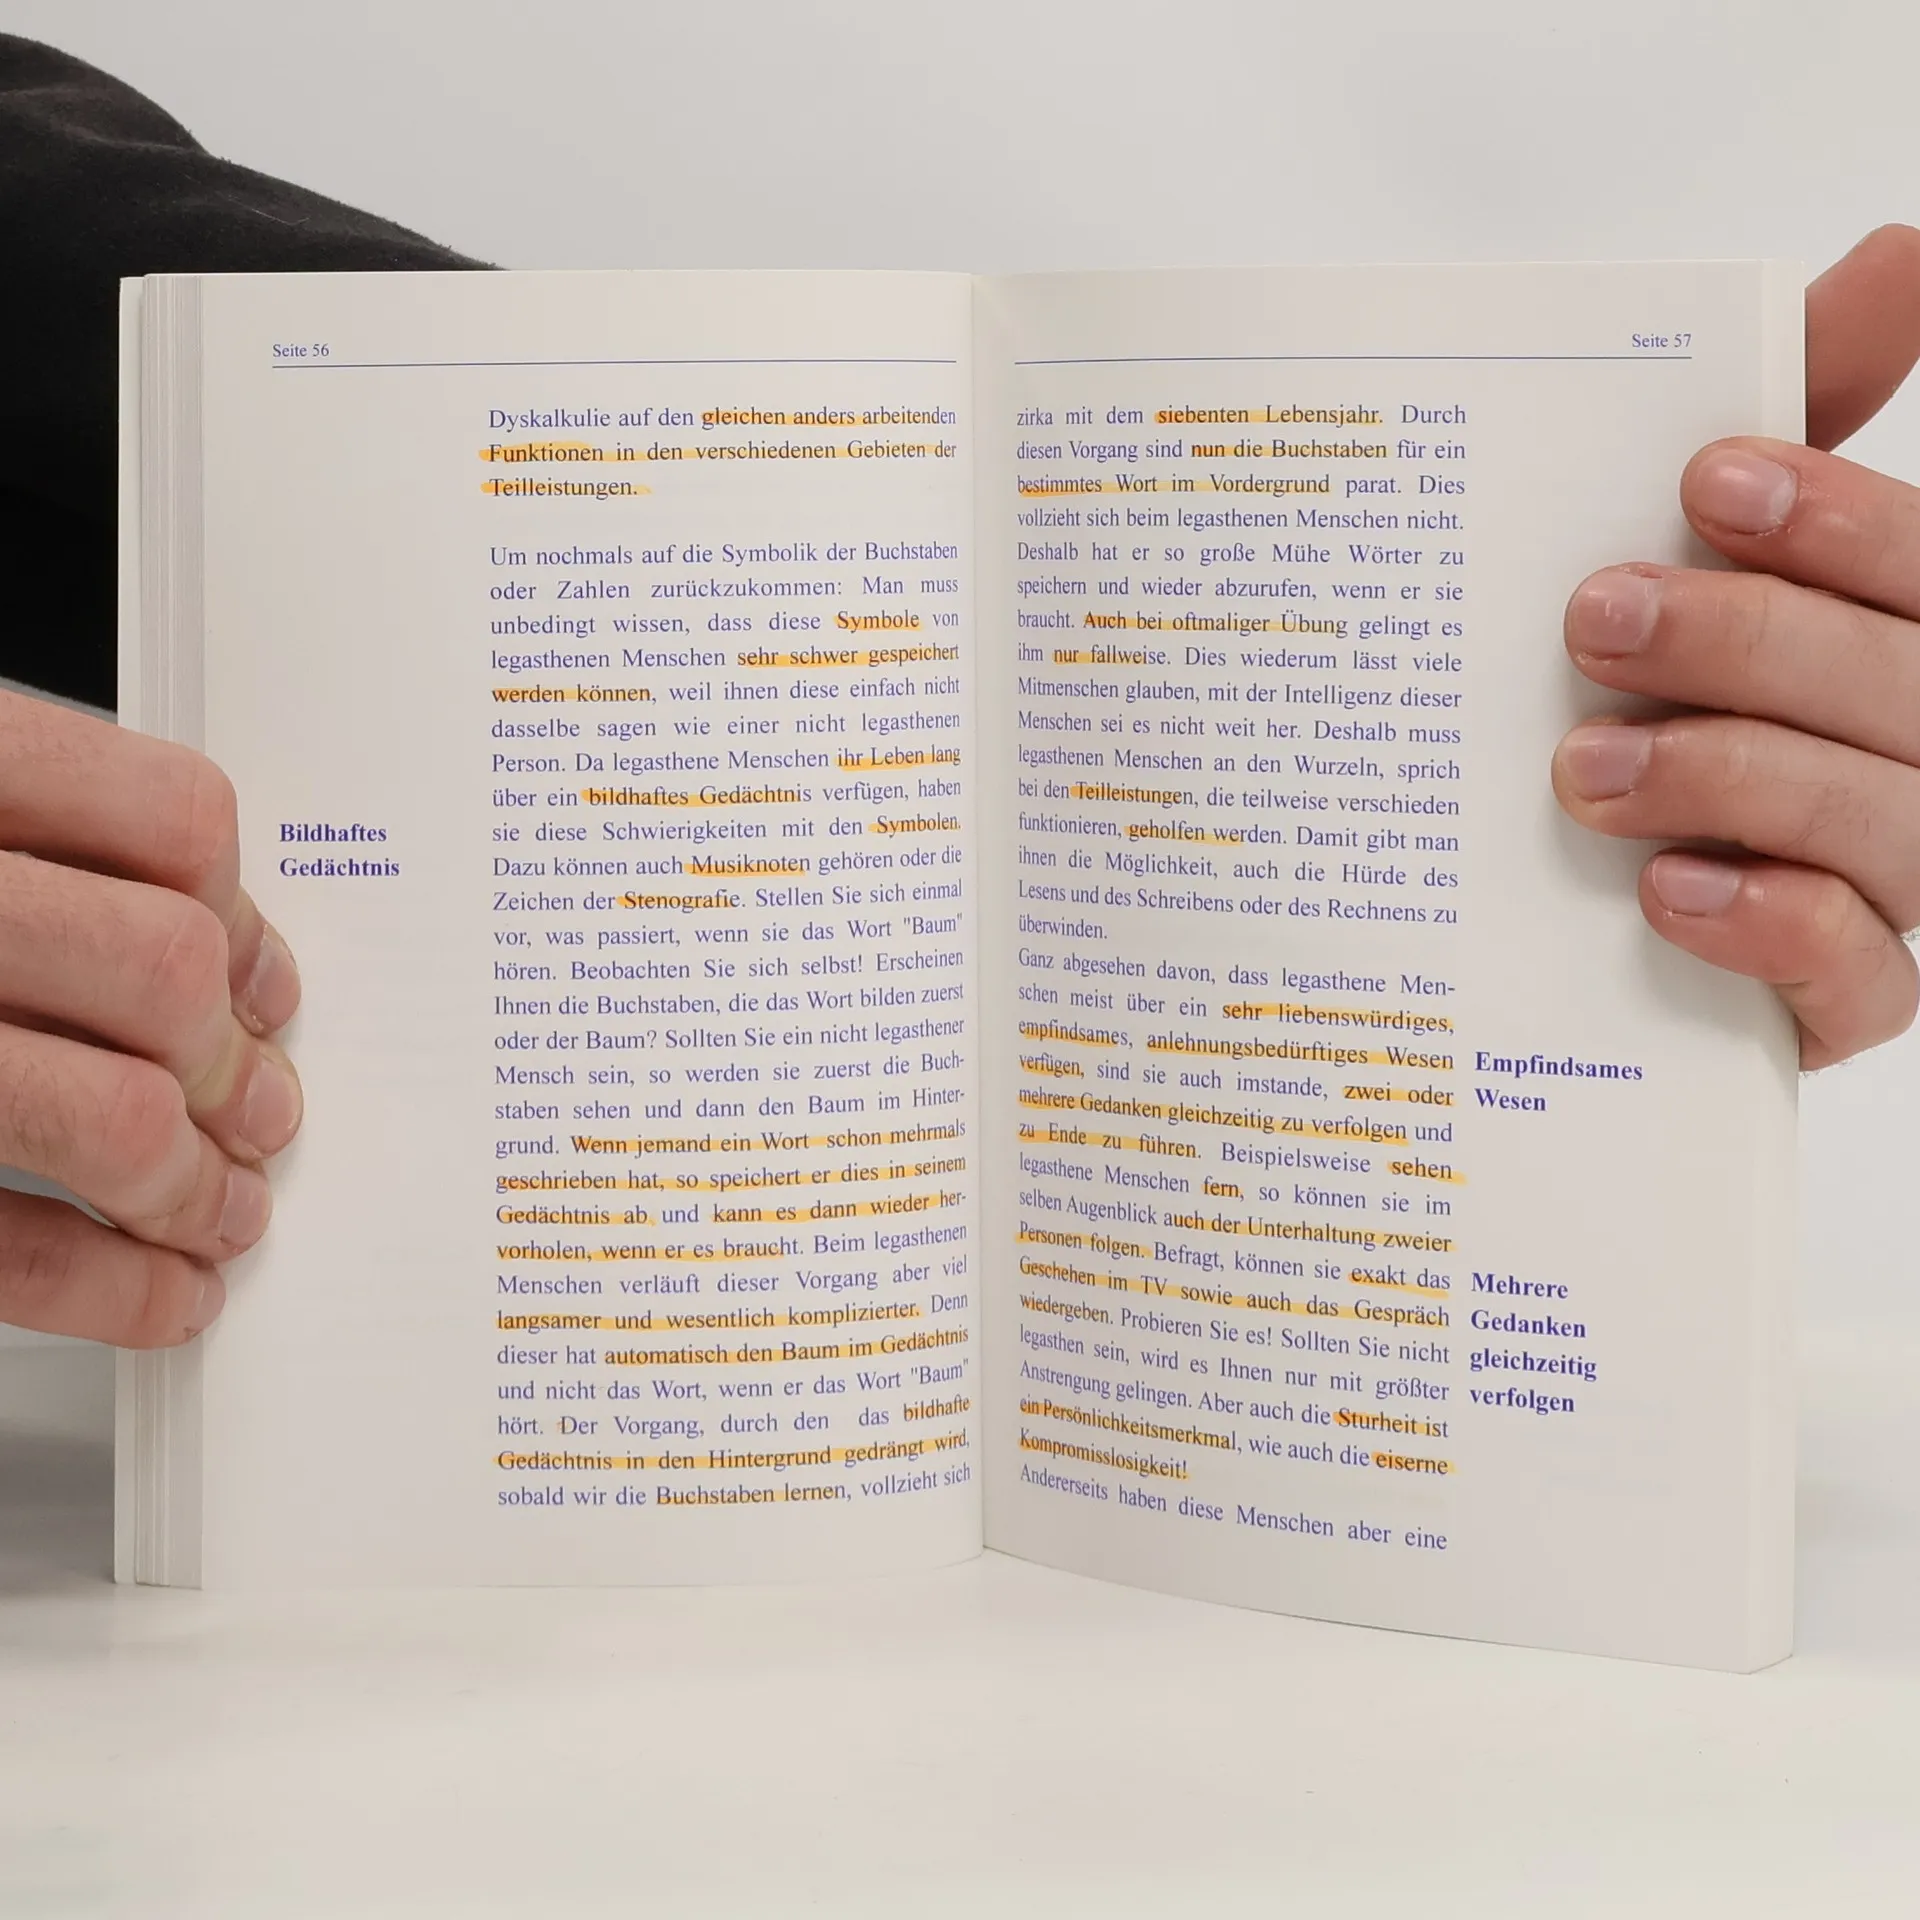 Seite 56
Dyskalkulie auf den gleichen anders arbeitenden
Funktionen in den verschiedenen Gebieten der
Teilleistungen.
Um nochmals auf die Symbolik der Buchstaben
oder Zahlen zurückzukommen: Man muss
unbedingt wissen, dass diese Symbole von
legasthenen Menschen sehr schwer gespeichert
werden können, weil ihnen diese einfach nicht
dasselbe sagen wie einer nicht legasthenen
Person. Da legasthene Menschen ihr Leben lang
über ein bildhaftes Gedächtnis verfügen, haben
sie diese Schwierigkeiten mit den Symbolen.
Dazu können auch Musiknoten gehören oder die
Zeichen der Stenografie. Stellen Sie sich einmal
vor, was passiert, wenn sie das Wort "Baum"
hören. Beobachten Sie sich selbst! Erscheinen
Ihnen die Buchstaben, die das Wort bilden zuerst
oder der Baum? Sollten Sie ein nicht legasthener
Mensch sein, so werden sie zuerst die Buch-
staben sehen und dann den Baum im Hinter-
grund. Wenn jemand ein Wort schon mehrmals
geschrieben hat, so speichert er dies in seinem
Gedächtnis ab und kann es dann wieder her-
vorholen, wenn er es braucht. Beim legasthenen
Menschen verläuft dieser Vorgang aber viel
langsamer und wesentlich komplizierter. Denn
dieser hat automatisch den Baum im Gedächtnis
und nicht das Wort, wenn er das Wort "Baum"
hört. Der Vorgang, durch den das bildhafte
Gedächtnis in den Hintergrund gedrängt wird,
sobald wir die Buchstaben lernen, vollzieht sich
Bildhaftes
Gedächtnis
Seite 57
zirka mit dem siebenten Lebensjahr. Durch
diesen Vorgang sind nun die Buchstaben für ein
bestimmtes Wort im Vordergrund parat. Dies
vollzieht sich beim legasthenen Menschen nicht.
Deshalb hat er so große Mühe Wörter zu
speichern und wieder abzurufen, wenn er sie
braucht. Auch bei oftmaliger Übung gelingt es
ihm nur fallweise. Dies wiederum lässt viele
Mitmenschen glauben, mit der Intelligenz dieser
Menschen sei es nicht weit her. Deshalb muss
legasthenen Menschen an den Wurzeln, sprich
bei den Teilleistungen, die teilweise verschieden
funktionieren, geholfen werden. Damit gibt man
ihnen die Möglichkeit, auch die Hürde des
Lesens und des Schreibens oder des Rechnens zu
überwinden.
Ganz abgesehen davon, dass legasthene Men-
schen meist über ein sehr liebenswürdiges,
empfindsames, anlehnungsbedürftiges Wesen
verfügen, sind sie auch imstande, zwei oder
mehrere Gedanken gleichzeitig zu verfolgen und
zu Ende zu führen. Beispielsweise sehen
legasthene Menschen fern, so können sie im
selben Augenblick auch der Unterhaltung zweier
Personen folgen. Befragt, können sie exakt das
Geschehen im TV sowie auch das Gespräch
wiedergeben. Probieren Sie es! Sollten Sie nicht
legasthen sein, wird es Ihnen nur mit größter
Anstrengung gelingen. Aber auch die Sturheit ist
ein Persönlichkeitsmerkmal, wie auch die eiserne
Kompromisslosigkeit!
Andererseits haben diese Menschen aber eine
Empfindsames
Wesen
Mehrere
Gedanken
gleichzeitig
verfolgen